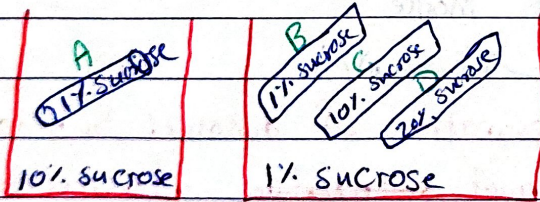 A
1% sucrose
10% sucrose
B
1% sucrose
C
10% sucrose
D
20% sucrose
1% sucrose